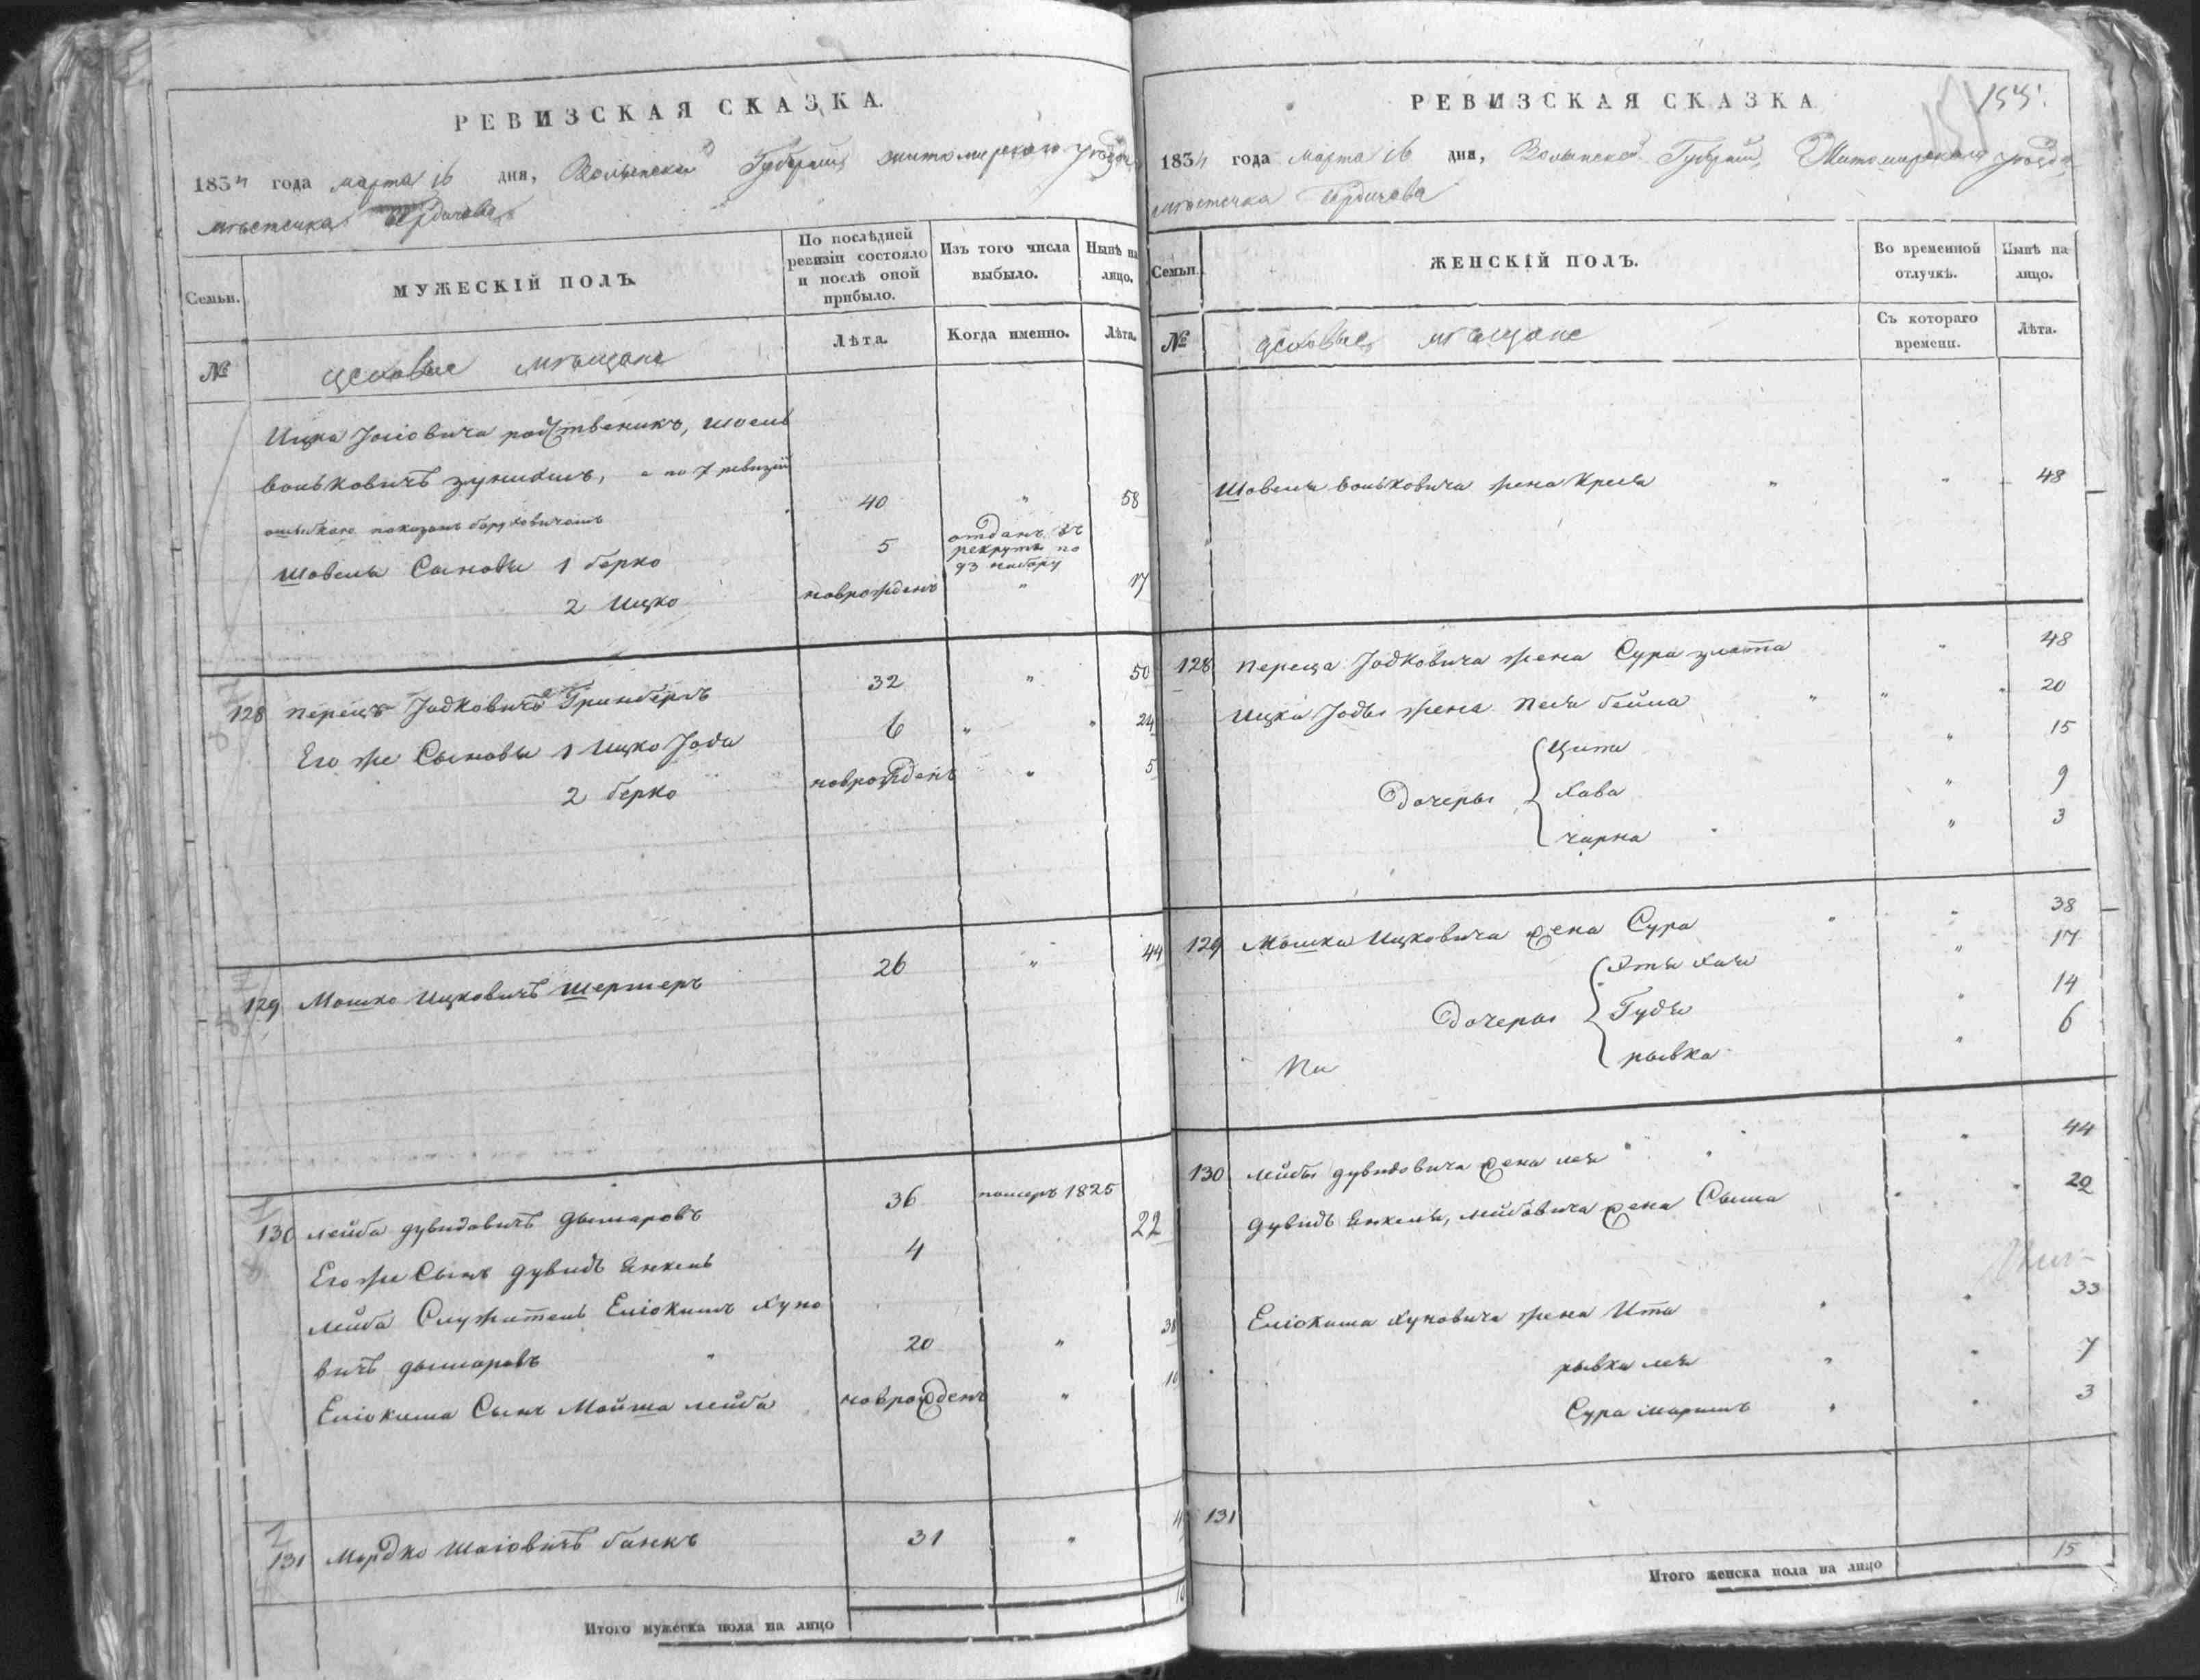 РЕВИЗСКАЯ СКАЗКА.
1834 года марта 16 дня, Волынской Губерніи, житомирского уѣзда
мѣстечка Бердичева
Семьи.
МУЖЕСКІЙ ПОЛЪ.
По послѣдней ревизіи состояло и послѣ оной прибыло.
Изъ того числа выбыло.
Нынѣ на лицо.
№
цеховые мѣщане
Лѣта.
Когда именно.
Лѣта.
Ицка родственикъ, шоель
воьковичъ а по 7 ревизіи
ошыбкою показанъ 40 " 58
Шовеля Сыновья 1 берко 5 отданъ въ рекруты по 93 набору
2 Ицко новрожденъ " 17
128 перецъ Іодковичъ Гринбергъ 32 " 50
Его же Сыновья 1 Ицко Іода 6 " " 24
2 берко новрожденъ " 5
129 Мошко Ицковичъ Шертеръ 26 " 44
130 лейба дувидовичъ дымаровъ 36 померъ 1825
Его же Сынъ дувидъ Янкель 4 22
лейба Служитель Еліокимъ Хуно
вичъ дымаровъ 20 " 38
Еліокима Сынъ Мойша лейба новрожденъ " 10
131 Мордко Шаіовичъ банкъ 31 "
Итого мужеска пола на лицо
РЕВИЗСКАЯ СКАЗКА
1834 года марта 16 дня, Волынской Губерніи, Житомирскаго уѣзда
мѣстечка Бердичева
Семьи.
ЖЕНСКІЙ ПОЛЪ.
Во временной отлучкѣ.
Нынѣ на лицо.
№
цеховые мѣщане
Съ котораго времени.
Лѣта.
Шовеля воьковича жена Крейя " " 48
128 переца Іодковича жена Сура злата " 48
Ицка Іоды жена песя бейла " " " 20
Дочеры
Цита " 15
Хава " 9
чарна " 3
129 Мошка Ицковича жена Сура " " 38
Дочеры
Хая " 17
Гудя " 14
рывка " 6
130 лейбы дувидовича жена лея " " " 44
дувидъ Янкеля, лейбовича жена Сыма " " 20
Еліокима Хуновича жена Ита " " 33
рывка лея " " 7
Сура маріямъ " " 3
131
Итого женска пола на лицо 15